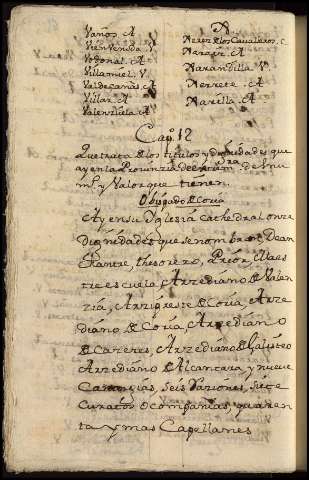 Vaños. A
Vienvenida. V
Vodonal. A
Villamiel. V
Valdecañas. A
Villar. A
Valenzuela. A
X
Xerez de los Cavalleros. C
Xaraiz. A
Xarandilla. V
Xerrete. A
Xarilla. A
Cap. 12
Que trata de los titulos y dignidades que
ay en la Provinzia de Estrem.dra de su
num.º y Valor que tienen.
Obispado de Coria
Ay en su Yglesia Cathedral onze
Dignidades que se nombran: Dean
Chantre, thesorero, Prior, Maes
tre escuela, Arzediano de Valen
zia, Arzipreste de Coria, Arze
diano de Coria, Arzediano
de Cazeres, Arzediano de Galisteo
Arzediano de Alcantara, y nueve
Canongias, Seis Raziones, Siete
Curatos o compañias, quaren
ta y mas Capellanes